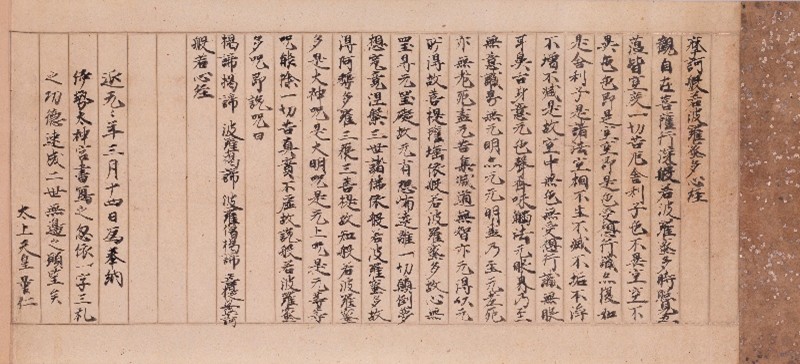 摩訶般若波羅蜜多心経
觀自在菩薩行深般若波羅蜜多時照見五
蘊皆空度一切苦厄舎利子色不異空空不
異色色即是空空即是色受想行識亦復如
是舎利子是諸法空相不生不滅不垢不浄
不増不減是故空中無色無受想行識無眼
耳鼻舌身意无色聲香味觸法无眼界乃至
無意識界無无明亦无无明盡乃至无老死
亦无老死盡无苦集滅道無智亦无得以无
所得故菩提薩埵依般若波羅蜜多故心無
罣导无罣礙故无有恐怖遠離一切顛倒夢
想究竟涅槃三世諸佛依般若波羅蜜多故
得阿耨多羅三藐三菩提故知般若波羅蜜
多是大神呪是大明呪是无上呪是无等等
呪能除一切苦真實不虚故説般若波羅蜜
多呪即説呪曰
揭諦揭諦 波羅揭諦 波羅僧揭諦 菩提娑婆訶
般若心経
延元々年三月十四日為奉納
伊勢太神宮書寫之忽依一字三礼
之功徳速成二世無邊之願望矣
太上天皇量仁